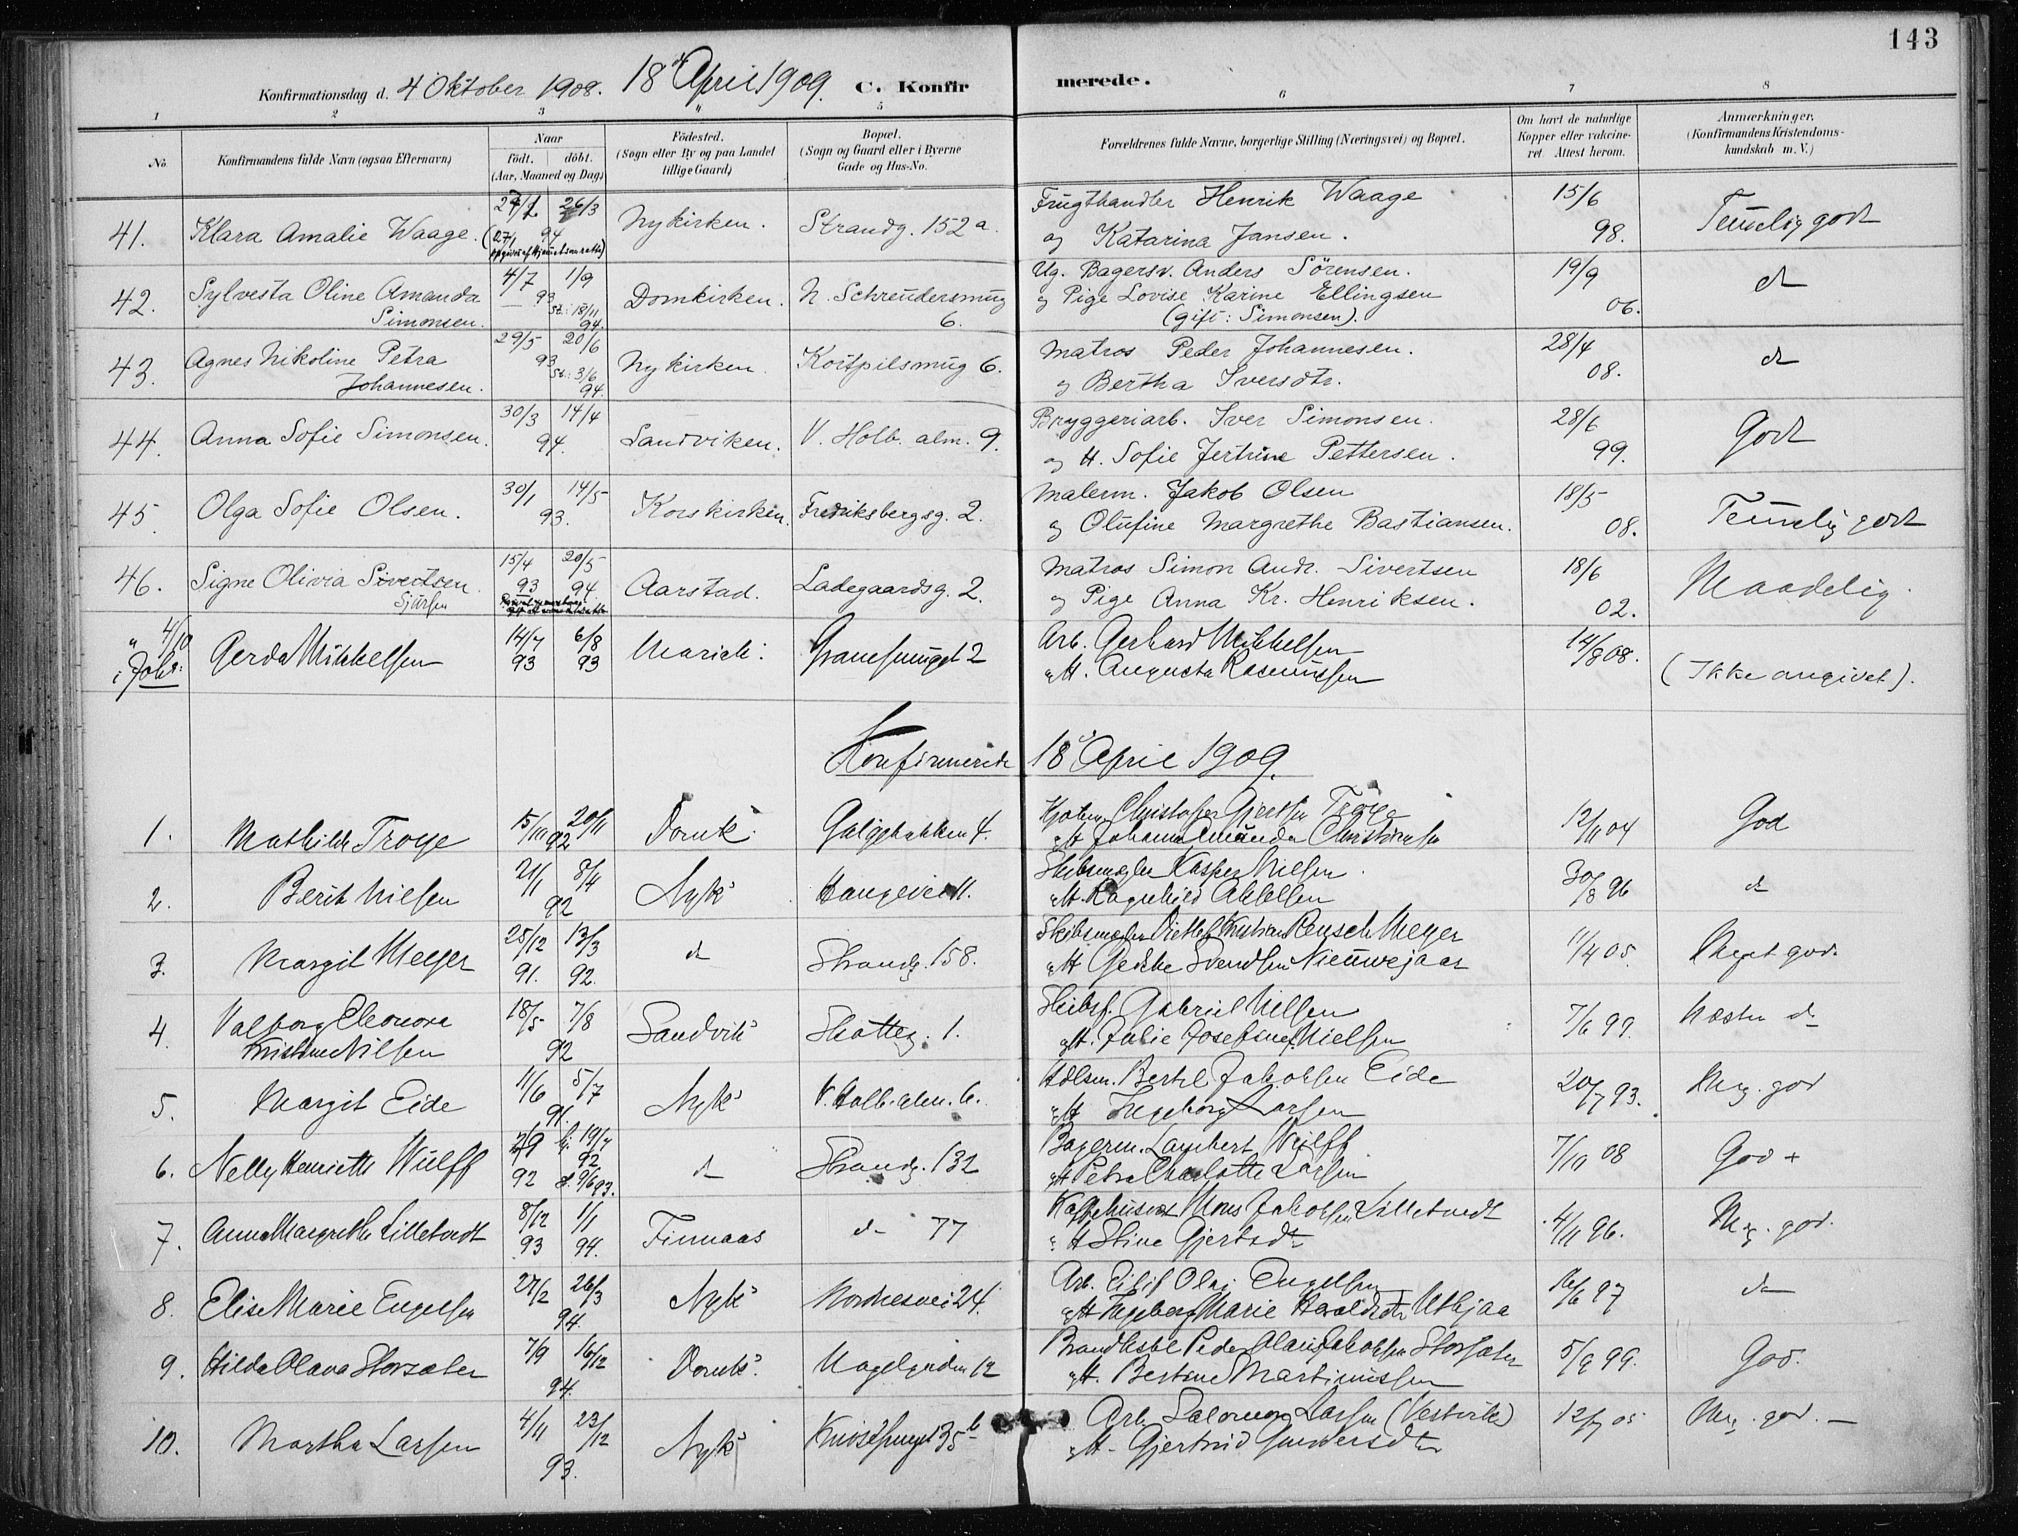 143
Konfirmationsdag d. 4 Oktober 1908. 18 April 1909. C. Konfirmerede.
1 2 3 4 5 6 7 8
No
Konfirmandens fulde Navn (ogsaa Efternavn)
Naar
födt. döbt.
(Aar, Maaned og Dag)
Födested.
(Sogn eller By og paa Landet
tillige Gaard)
Bopæl.
(Sogn og Gaard eller i Byerne
Gade og Hus-No.
Forældrenes fulde Navne, borgerlige Stilling (Næringsvei) og Bopæl.
Om havt de naturlige
Kopper eller vakcine-
ret. Attest herom.
Anmærkninger.
(Konfirmandens Kristendoms-
kundskab m. V.)
41. Klara Amalie Waage. 26/3 94 Nykirken. Strandg. 152 a. Frugthandler Henrik Waage 15/6
og Katarina Jansen. 98. Temelig godt
42. Sylvesta Oline Amanda 4/7 1/9 93 Domkirken. N. Schreudersmug Ug. Bagersv. Anders Sørensen. 19/9 d
Simonsen. St: 18/11 94. 6. og Pige Lovise Karine Ellingsen 06.
(gift: Simonsen).
43. Agnes Nikoline Petra 29/5 20/6 93 Nykirken. Kortpilsmug 6. Matros Peder Johannesen. 28/4 d
Johannesen. St: 3/6 94. og Bertha Iversdtr. 08.
44. Anna Sofie Simonsen. 30/3 14/4 94. Sandviken. V. Holb. alm. 9. Bryggeriarb. Iver Simonsen. 28/6 Godt
og H. Sofie Jertrine Pettersen. 99.
45 Olga Sofie Olsen. 30/1 14/5 93. Korskirken. Fredriksbergsg. 2. Malerm. Jakob Olsen 18/5 Temelig godt
og Olufine Margrethe Bastiansen. 08.
46. Signe Olivia Sivertsen 15/4 20/5 93 94 Aarstad. Ladegaardsg. 2. Matros Simon Andr. Sivertsen 18/6 Maadelig.
Sjursen og Pige Anna Kr. Henriksen. 02.
" 4/10 Gerda Mikkelsen 14/7 6/8 Mariek: Granesmuget 2 Arb. Gerhard Mikkelsen 14/8 08.
i Joh: 93 93 og H. Augusta Rasmussen (Ikke angivet).
Konfirmerede 18 April 1909.
1. Mathilde Troye 15/11 20/11 92 Domk: Galgebakken 4. Christoffer Gjertsen Troye 12/11 04 God
og H Johanna Amanda Christensen
2. Berit Nielsen 21/1 8/4 92 Nyk: Haugevei 11. Skibsmægler Kasper Nielsen. 30/8 96 d
og H. Ragnhild
3. Margit Meyer 25/12 13/3 d Strandg. 158. Skibsmægler Ditlef Kristian Reusch Meyer 11/4 05. Meget god.
91. 92. og H Gedske Svendsen Nieuwejaar
4. Valborg Eleonora 18/5 7/8 Sandvik: Skotteg. 1. Skibsf. Gabriel Nilsen 7/6 99. Næsten d
Kristine Nilsen 92 og H. Julie Josefine Nielsen
5. Margit Eide 11/6 5/7 91. Nyk: V. Holb. alm. 6. Hdlsm. Bertel Jakobsen Eide 20/7 93. Mg. god
og H Ingeborg Larsen
6. Nelly Henriette Wulff 7/9 19/7 92 d Strandg. 132 Bagerm. Lambert Wulff 7/10 08 God +
92 d. 9/6 93. og H Petra Charlotte Larsen
7. Anna Margrethe Lilletvedt 8/12 1/1 Finnaas d 77 Mons Jakobsen Lilletvedt 4/11 96. Mg. god.
93 94. " H Stine Gjertsdtr
8. Elise Marie Engelsen 27/2 26/3 94. Nyk: Nordnesvei 24. Arb. Eilif Olai Engelsen 16/6 97 d
og H Ingeborg Marie Haraldsdtr Utkjaa
9. Hilda Olava Storsæter 7/9 16/12 94. Domk: Nagelgården 12 Peder Olai Jakobsen Storsæter 5/9 99. God.
og H. Bertine Martinussen
10. Martha Larsen 4/11 23/12 93. Nyk: Knøsesmuget 35 b Arb. Salomon Larsen (Vestvik) 12/7 05 Mg. god.
og H. Gjertrud Gundersdtr